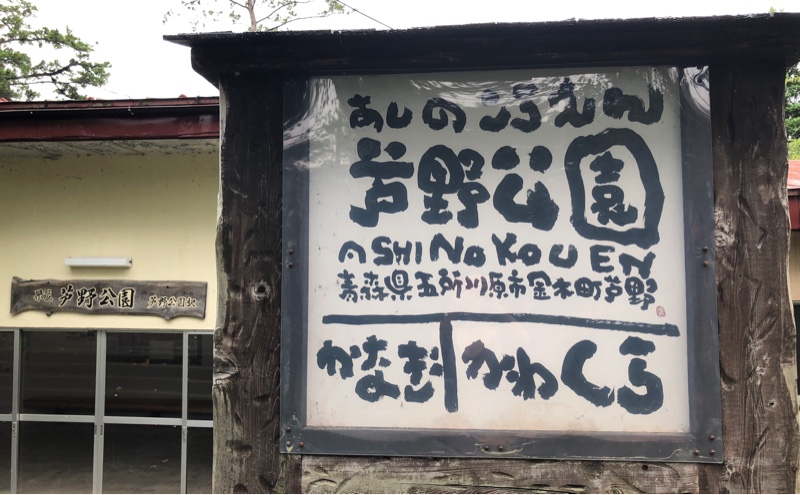 あしのこうえん
芦野公園
ASHINOKOUEN
青森県五所川原市金木町芦野
かなぎ かわくら
県立 芦野公園 芦野公園駅